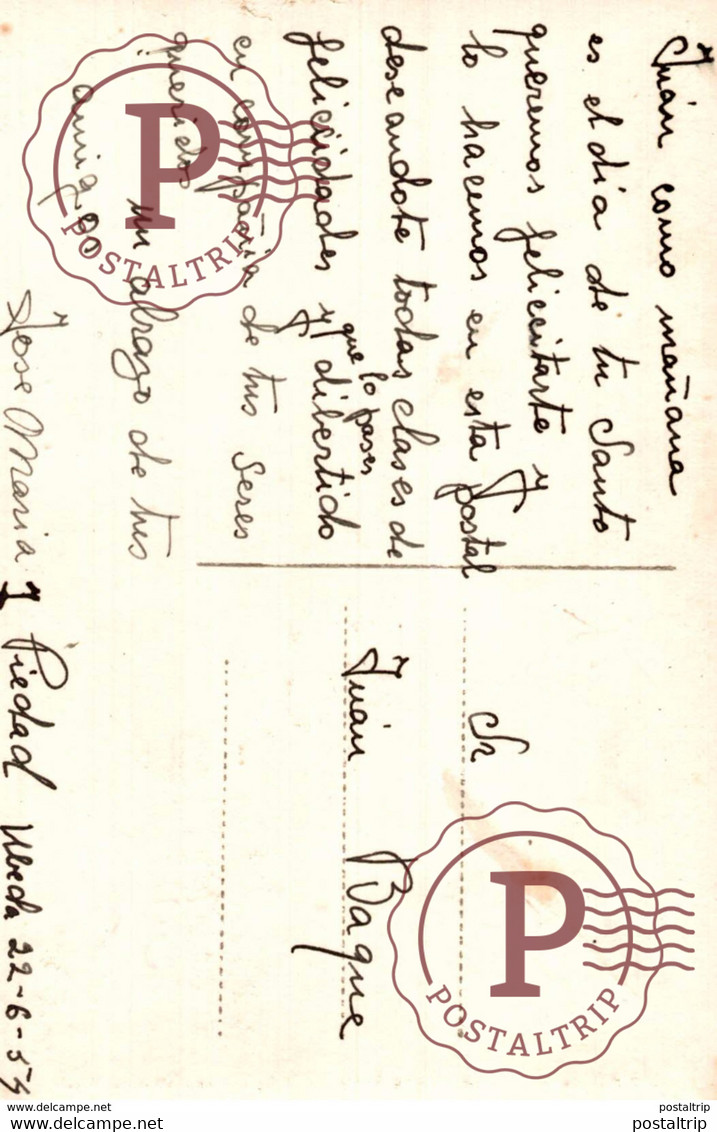 Juán como mañana
es el dia de tu Santo
queremos felicitarte y
lo hacemos en esta postal
deseandote todas clases de
felicidades y que lo pases dibertido
en compañia de tus Seres
queridos un abrazo de tus
amigos
Jose Maria y Piedad Ubeda 22-6-54
Sr
Juán Baque
POSTALTRIP
POSTALTRIP
www.delcampe.net
postaltrip
www.delcampe.net
postaltrip